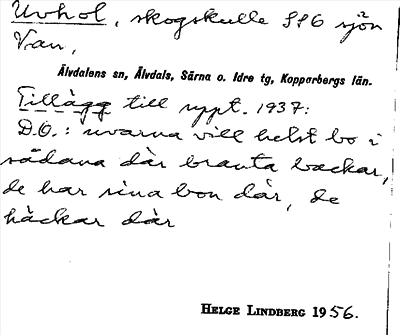 Uvhol, skogskulle SSG sjön
Van,
Älvdalens sn, Älvdals, Särna o. Idre tg, Kopparbergs län.
Tillägg till uppt. 1937:
D.O.: uvarna vill helst bo i
sådana där branta backar,
de har sina bon där, de
häckar där
HELGE LINDBERG 1956.